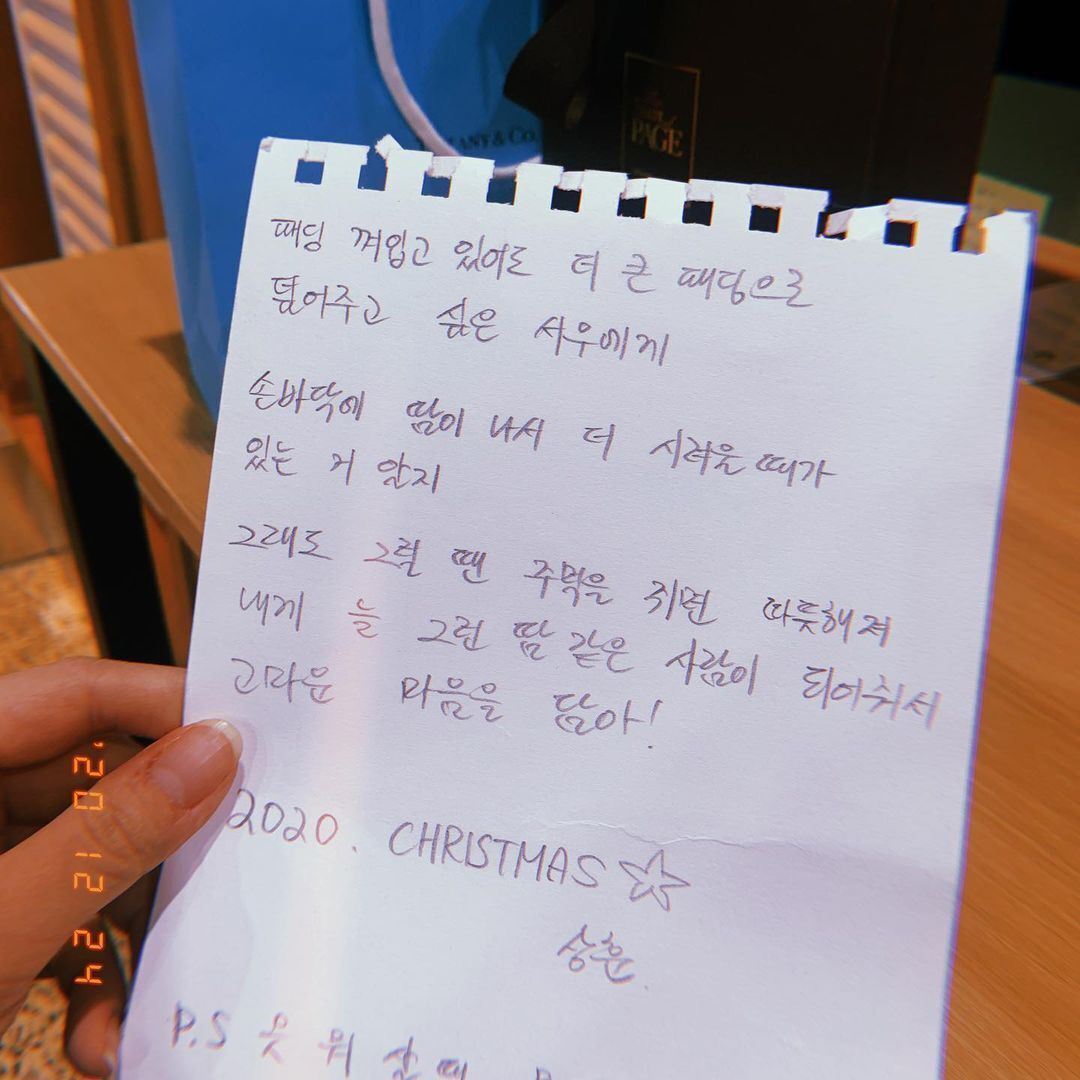 TIFFANY & CO.
PAGE
패딩 껴입고 있어도 더 큰 패딩으로
덮어주고 싶은 사우에게
손바닥에 땀이 나서 더 시려울 때가
있는 거 알지
그래도 그럴 땐 주먹을 쥐면 따뜻해져
내게 늘 그런 땀 같은 사람이 되어줘서
고마운 마음을 담아!
2020. CHRISTMAS
상훈.
P.S 옷 뭐 살 때
'20 12 24